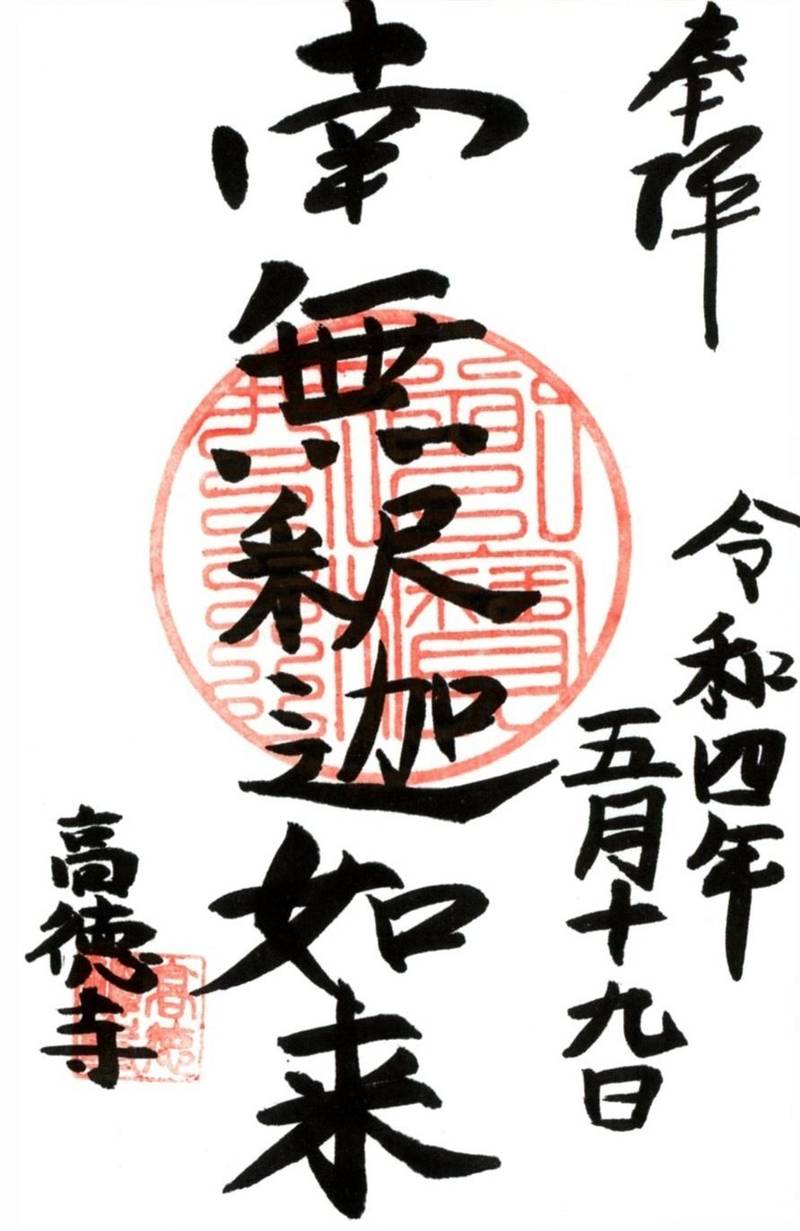 奉拝
令和四年
五月十九日
南無釈迦如来
高徳寺